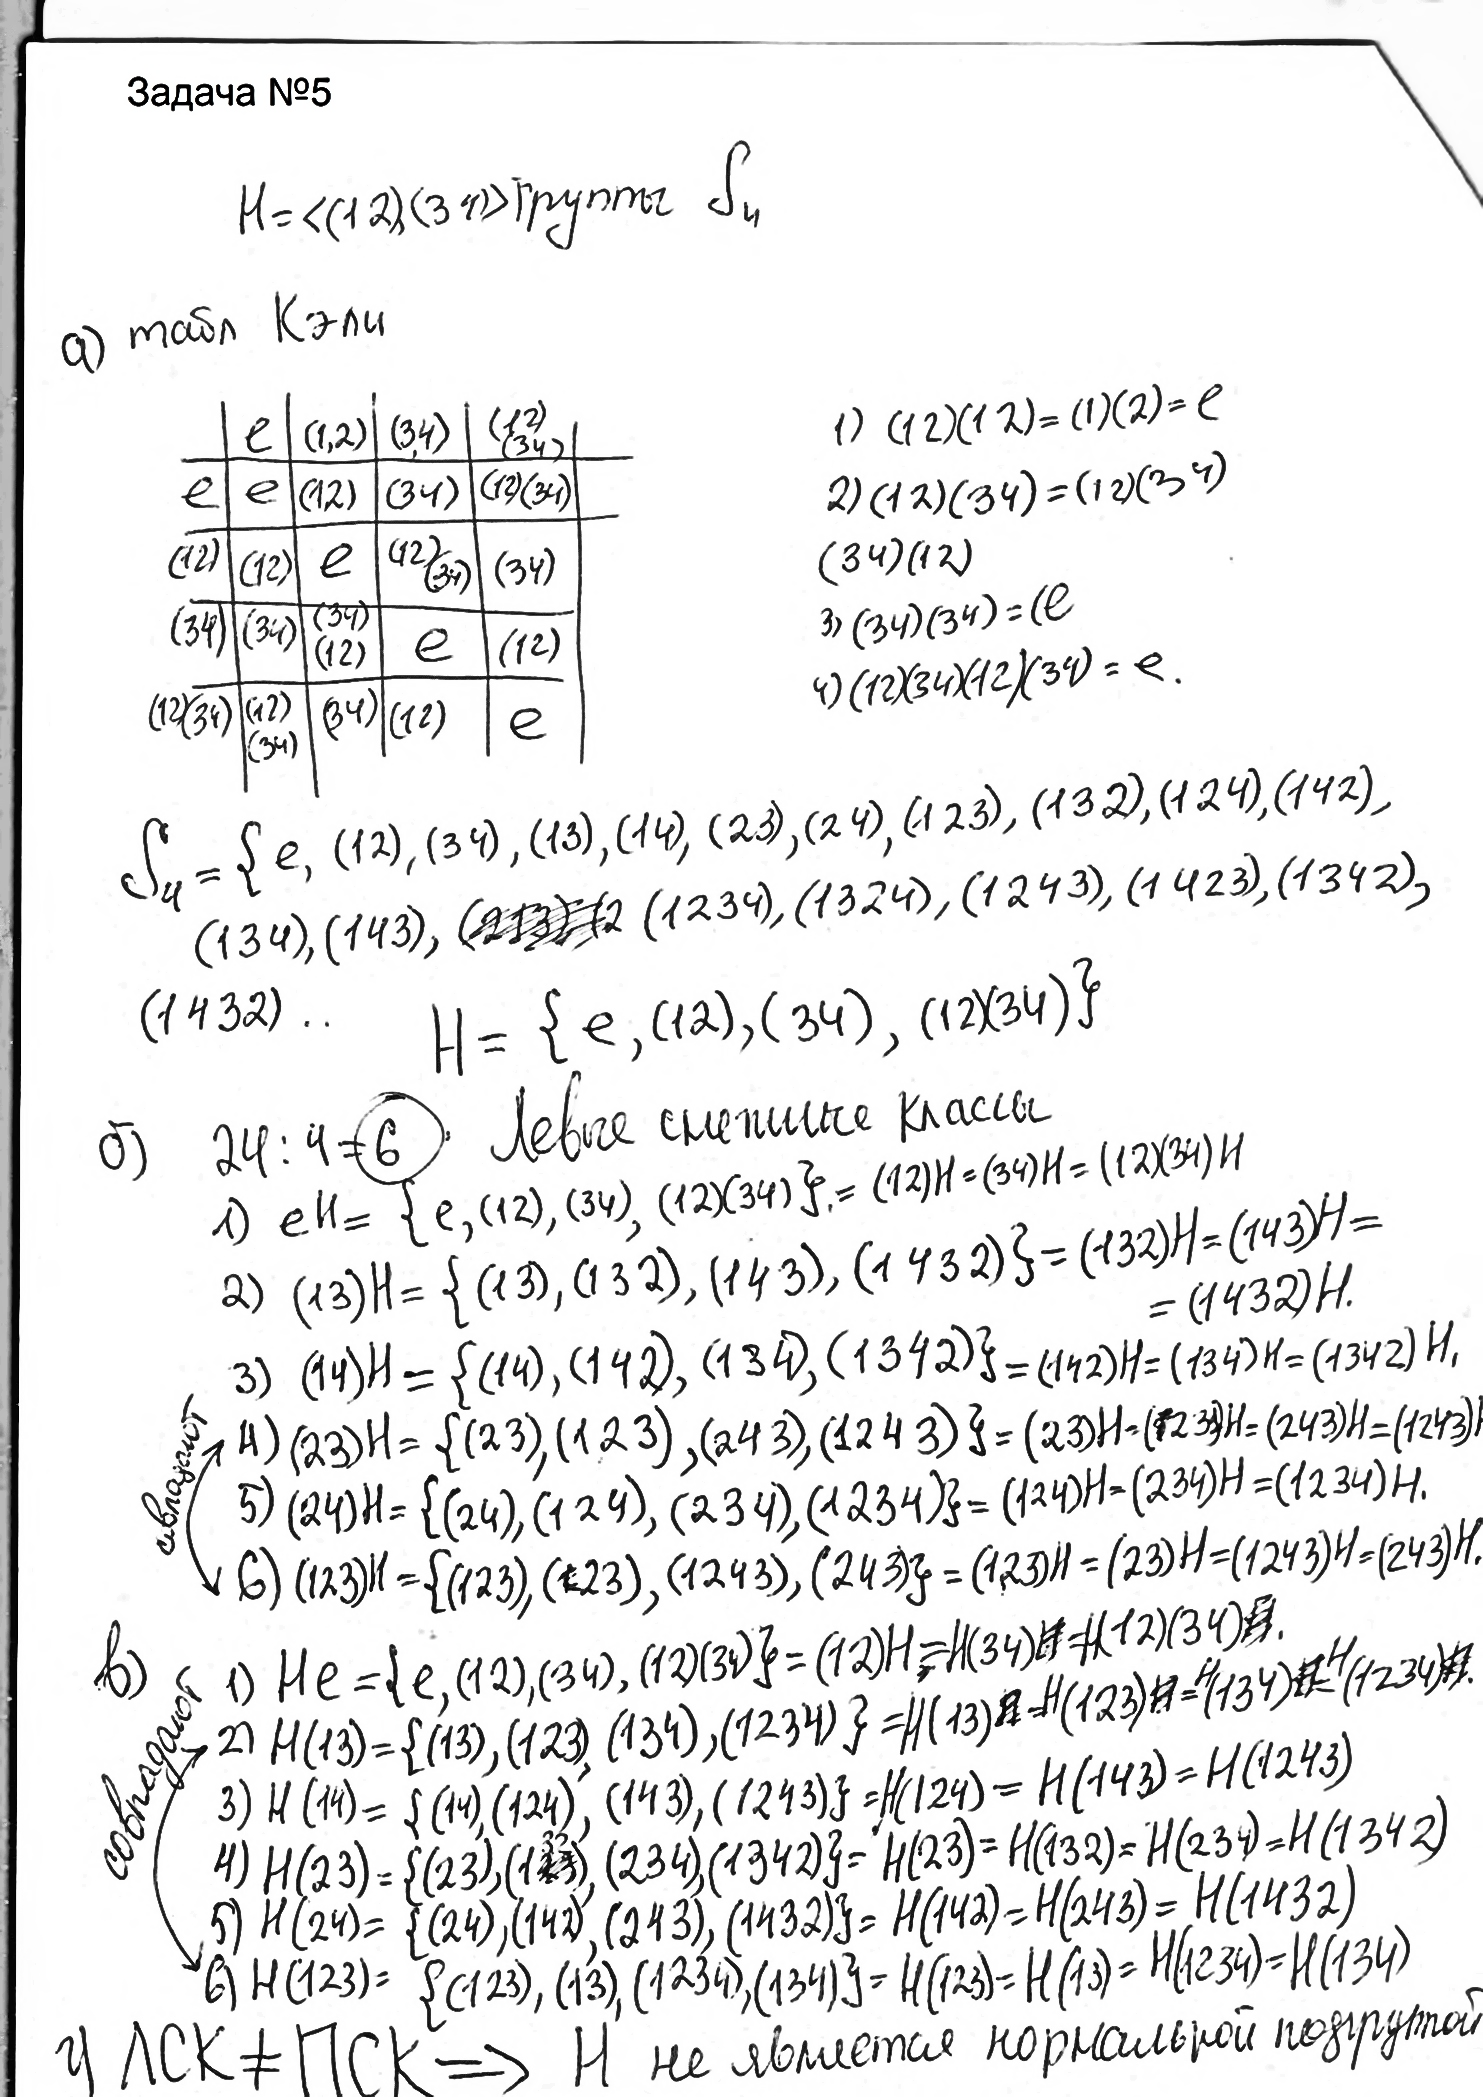 Задача №5
H = <(12),(34)> группы S₄
а) табл Кэли
e | (1,2) | (3,4) | (12)(34)
e | e | (12) | (34) | (12)(34)
(12) | (12) | e | (12)(34) | (34)
(34) | (34) | (34)(12) | e | (12)
(12)(34) | (12)(34) | (34) | (12) | e
1) (12)(12) = (1)(2) = e
2) (12)(34) = (12)(34)
(34)(12)
3) (34)(34) = (e
4) (12)(34)(12)(34) = e.
S₄ = {e, (12), (34), (13), (14), (23), (24), (123), (132), (124), (142),
(134), (143), (1234), (1324), (1243), (1423), (1342),
(1432) ..
H = {e, (12), (34), (12)(34)}
б) 24 : 4 = 6 Левые смежные классы
1) eH = {e, (12), (34), (12)(34)} = (12)H = (34)H = (12)(34)H
2) (13)H = {(13), (132), (143), (1432)} = (132)H = (143)H =
= (1432)H.
3) (14)H = {(14), (142), (134), (1342)} = (142)H = (134)H = (1342)H.
совпадают
4) (23)H = {(23), (123), (243), (1243)} = (23)H = (123)H = (243)H = (1243)H
5) (24)H = {(24), (124), (234), (1234)} = (124)H = (234)H = (1234)H.
6) (123)H = {(123), (23), (1243), (243)} = (123)H = (23)H = (1243)H = (243)H.
в) 1) He = {e, (12), (34), (12)(34)} = (12)H = H(34) = H(12)(34).
совпадают
2) H(13) = {(13), (123), (134), (1234)} = H(13) = H(123) = H(134) = H(1234).
3) H(14) = {(14), (124), (143), (1243)} = H(124) = H(143) = H(1243)
4) H(23) = {(23), (132), (234), (1342)} = H(23) = H(132) = H(234) = H(1342)
5) H(24) = {(24), (142), (243), (1432)} = H(142) = H(243) = H(1432)
6) H(123) = {(123), (13), (1234), (134)} = H(123) = H(13) = H(1234) = H(134)
4) ЛСК ≠ ПСК => H не является нормальной подгруппой